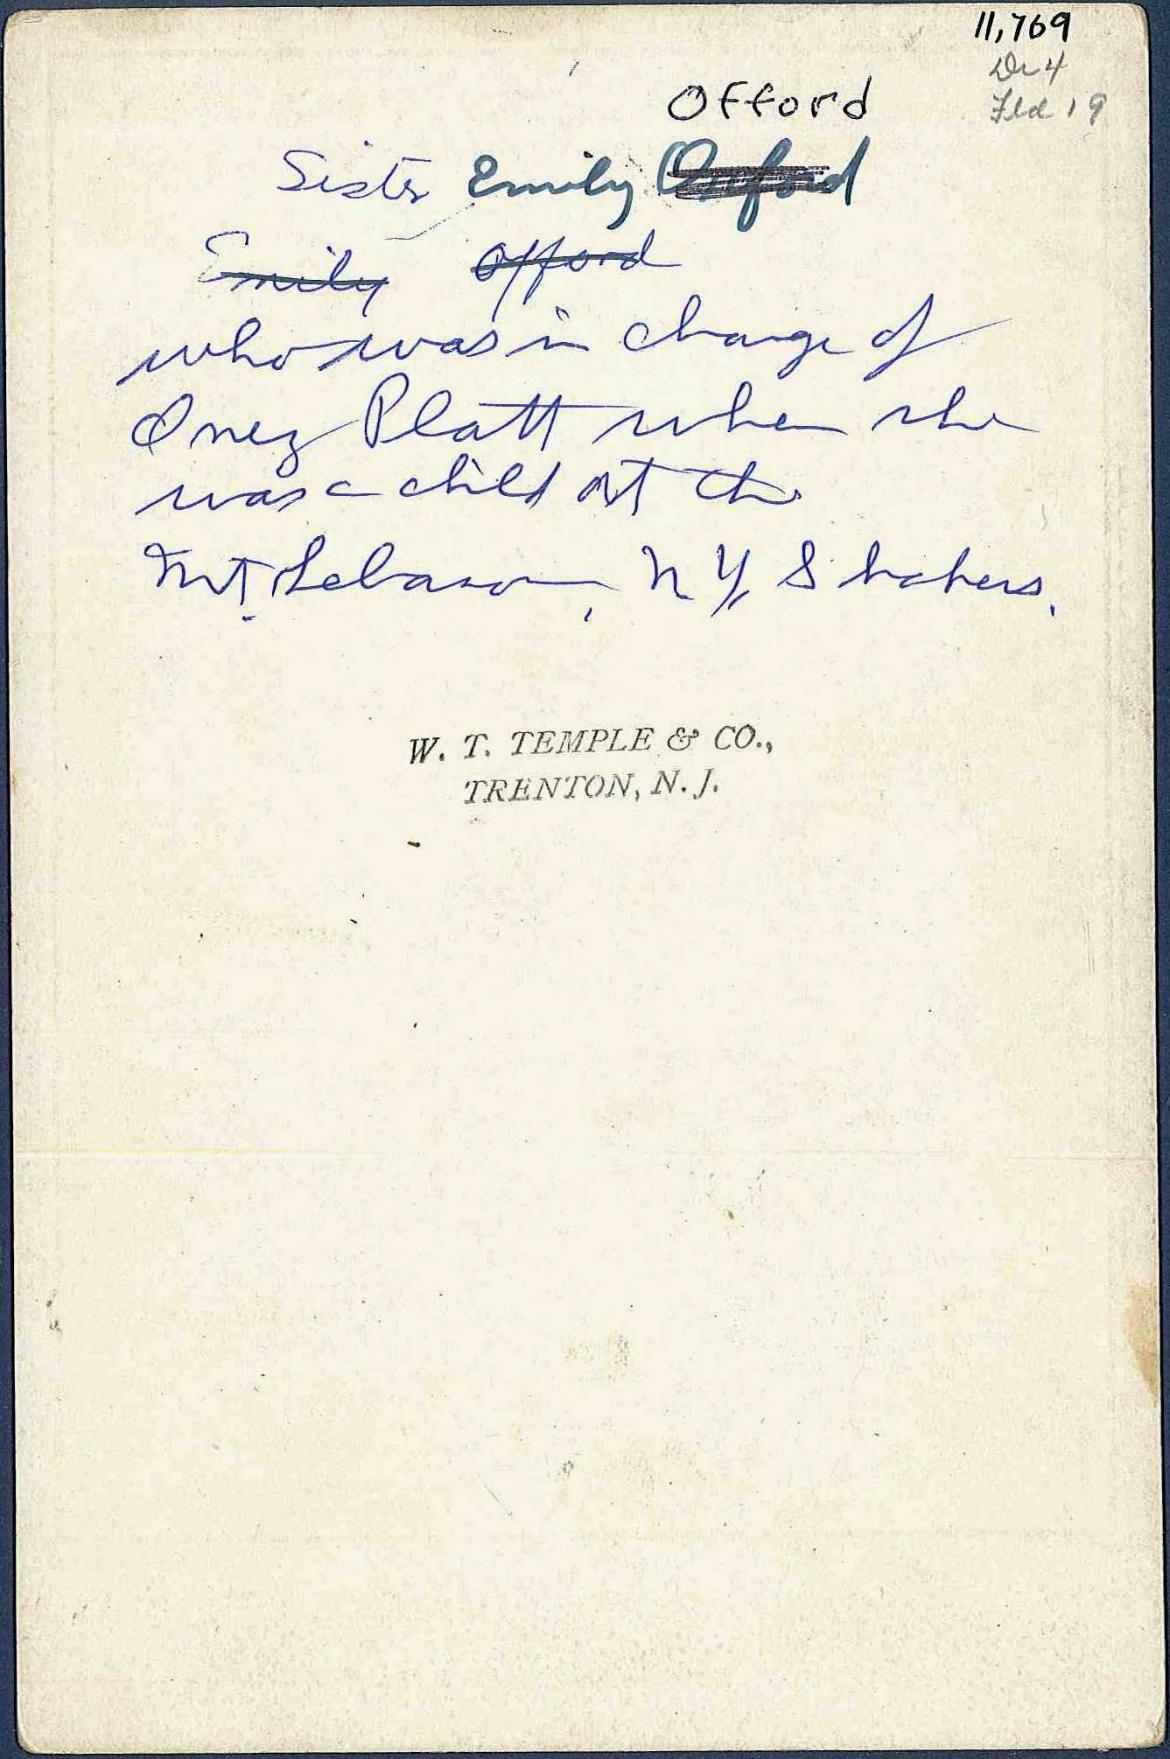 11,769
Dr 4
Fld 19
Offord
Sister Emily Oxford
Emily Offord
who was in charge of
Inez Platt when she
was a child at the
Mt. Lebanon, N Y, Shakers.
W. T. TEMPLE & CO.,
TRENTON, N. J.